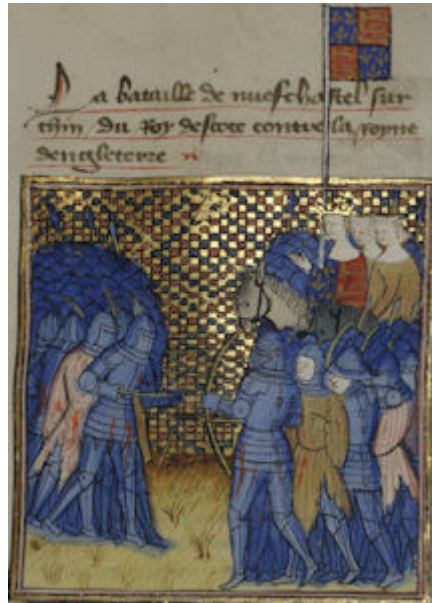 La bataille de nuefchastel sur
tym du Roy descoce contre la royne
dengleterre